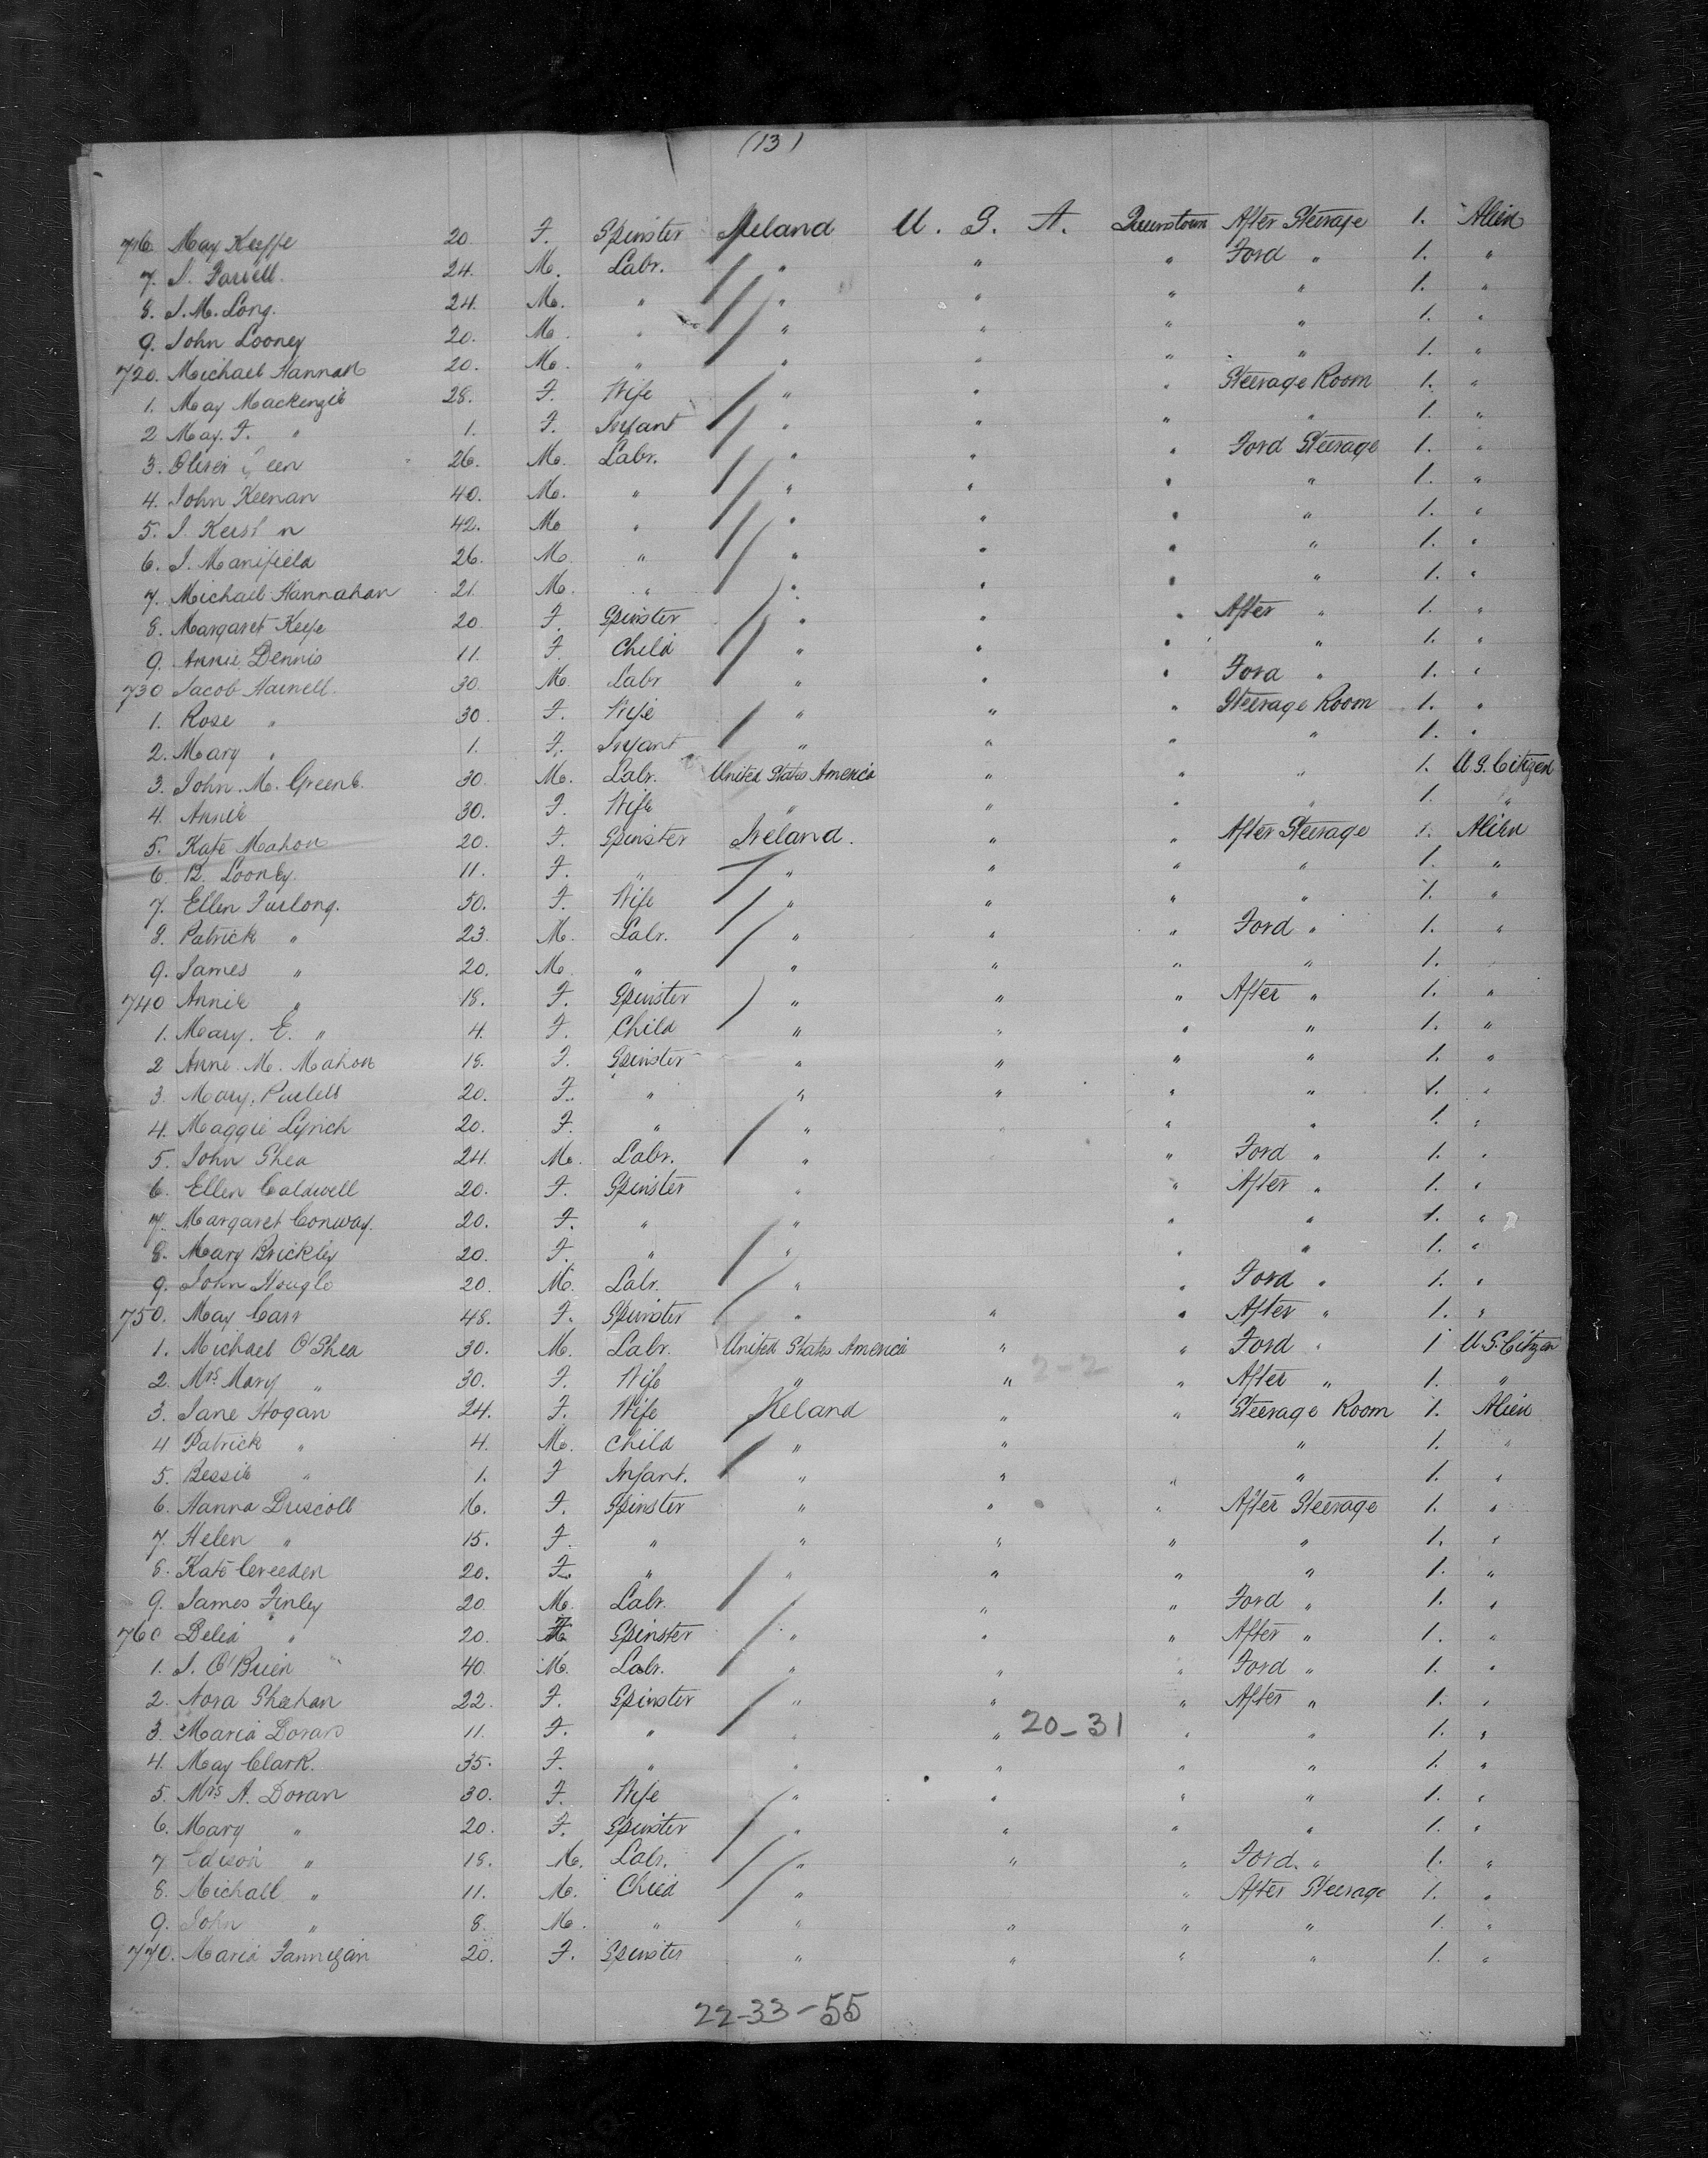 (13)
716 May Keeffe 20. F. Spinster Ireland U. S. A. Queenstown After Steerage 1. Alien
7. J. Farrell. 24. M. Labr. " " " Ford " 1. "
8. J. M. Long. 24. M. " " " " " 1. "
9. John Looney 20. M. " " " " " 1. "
720. Michael Hannan 20. M. " " " " " 1. "
1. May Mackenzie 28. F. Wife " " " Steerage Room 1. "
2 May. F. " 1. F. Infant " " " " 1. "
3. Oliver een 26. M. Labr. " " " Ford Steerage 1. "
4. John Keenan 40. M. " " " " " 1. "
5. J. 42. M. " " " " " 1. "
6. J. Manifield 26. M. " " " " " 1. "
7. Michael Hannahan 21. M. " " " " " 1. "
8. Margaret Keefe 20. F. Spinster " " " After " 1. "
9. Annie Dennis 11. F. Child " " " " 1. "
730 Jacob Harnell. 30. M. Labr " " " Ford " 1. "
1. Rose " 30. F. Wife " " " Steerage Room 1. "
2. Mary " 1. F. Infant " " " " 1. "
3. John. M. Greene. 30. M. Labr. United States America " " " 1. U.S. Citizen
4. Annie 30. F. Wife " " " " 1. "
5. Kate Mahon 20. F. Spinster Ireland. " " After Steerage 1. Alien
6. B. Looney. 11. F. " " " " " 1. "
7. Ellen Furlong. 50. F. Wife " " " " 1. "
8. Patrick " 23. M. Labr. " " " Ford " 1. "
9. James " 20. M. " " " " " 1.
740 Annie " 18. F. Spinster " " " After " 1. "
1. Mary. E. " 4. F. Child " " " " 1. "
2 Anne. M. Mahon 18. F. Spinster " " " " 1. "
3. Mary. Purlell 20. F. " " " " " 1. "
4. Maggie Lynch 20. F. " " " " " 1. "
5. John Shea 24. M. Labr. " " Ford " 1. "
6. Ellen Caldwell 20. F. Spinster " " After " 1. "
7. Margaret Conway. 20. F. " " " " 1. "
8. Mary Brickley 20. F. " " " " 1. "
9. John Hough 20. M. Labr. " " Ford " 1. "
750. May Carr 48. F. Spinster " " " After " 1. "
1. Michael O'Shea 30. M. Labr. United States America " " Ford " 1 U.S. Citizen
2-2
2. Mrs Mary " 30. F. Wife " " " After " 1. "
3. Jane Hogan 24. F. Wife Ireland " " Steerage Room 1. Alien
4 Patrick " 4. M. Child " " " 1. "
5. Bessie " 1. F Infant. " " " " 1. "
6. Hanna Driscoll 16. F. Spinster " " " After Steerage 1. "
7. Helen " 15. F. " " " " " 1. "
8. Kate Creeden 20. F. " " " " " 1. "
9. James Finley 20 M. Labr. " " Ford " 1. "
760 Delia " 20. F. Spinster " " " After " 1. "
1. J. O'Brien 40. M. Labr. " " " Ford " 1. "
2. Nora Sheehan 22. F. Spinster " " " After " 1. "
3. Maria Doran 11. F. " " " 20-31 " " 1. "
4. May Clark. 35. F. " " " " " 1. "
5. Mrs A. Doran 30. F. Wife " " " " 1. "
6. Mary " 20. F. Spinster " " " " 1. "
7 Edison " 18. M. Labr. " " " Ford. " 1. "
8. Michael " 11. M. Child " " After Steerage 1. "
9. John " 8. M. " " " " " 1. "
770. Maria Fannigan 20. F. Spinster " " " " 1. "
22-33-55